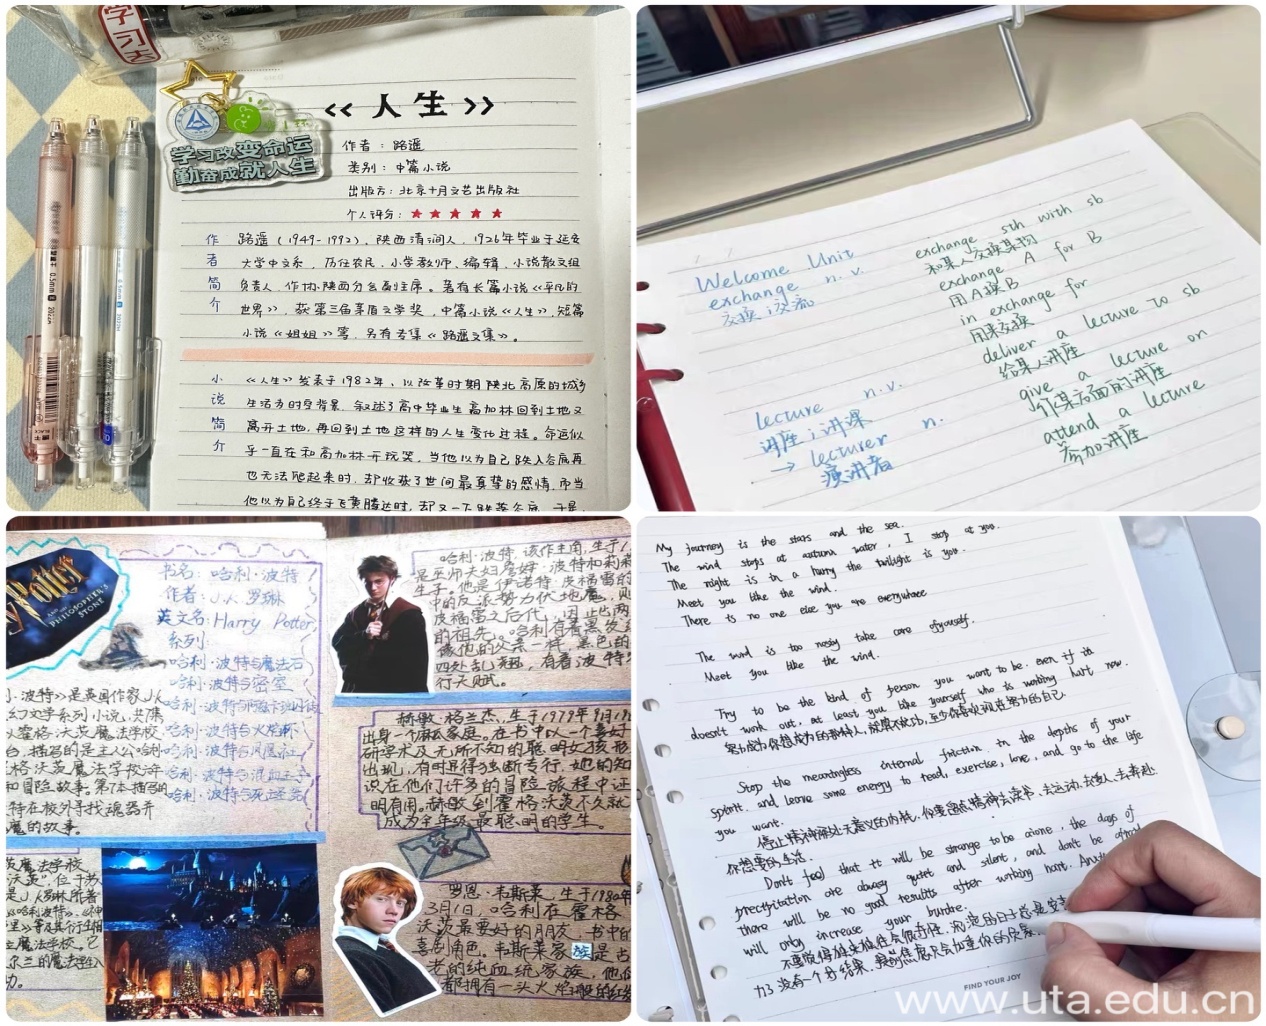 学习
学习改变命运
勤奋成就人生
《人生》
作者：路遥
类别：中篇小说
出版方：北京十月文艺出版社
个人评分：★★★★★
作者简介
路遥（1949-1992），陕西清涧人，1926年毕业于延安
大学中文系，历任农民、小学教师、编辑、小说散文组
负责人，作协陕西分会副主席。著有长篇小说《平凡的
世界》，获第三届茅盾文学奖，中篇小说《人生》，短篇
小说《姐姐》等，另有专集《路遥文集》。
小说简介
《人生》发表于1982年，以改革时期陕北高原的城乡
生活为时空背景，叙述了高中毕业生高加林回到土地又
离开土地，再回到土地这样的人生变化过程。命运似
乎一直在和高加林开玩笑，当他以为自己跌入谷底再
也无法爬起来时，却收获了世间最真挚的感情，而当
他以为自己终于飞黄腾达时，却又一下跌落谷底，于是，
Welcome Unit
exchange n. v.
交换；交流
lecture n. v.
讲座；讲课
→ lecturer n.
演讲者
exchange sth with sb
和某人交换某物
exchange A for B
用A换B
in exchange for
用来交换
deliver a lecture to sb
给某人讲座
give a lecture on
作某方面的讲座
attend a lecture
参加讲座
Potter
AND THE
PHILOSOPHER'S
STONE
书名：哈利·波特
作者：J.K.罗琳
英文名：Harry Potter
系列：
哈利·波特与魔法石
哈利·波特与密室
哈利·波特与阿兹卡班囚徒
哈利·波特与火焰杯
哈利·波特与凤凰社
哈利·波特与混血王子
哈利·波特与死亡圣器
利·波特》是英国作家J.K.
幻文学系列小说，共7集
以霍格沃茨魔法学校
台，描写的是主人公哈利
格沃茨魔法学校6年
和冒险故事。第7本描写的
特在校外寻找魂器并
魔的故事。
茨魔法学校
沃茨"，位于苏
是J.K.罗琳所著
《哈利波特》、《神
里》等及其衍生作
魔法学校。它
尔兰的魔法学生入
哈利·波特，该作主角，生于1
是巫师夫妇詹姆·波特和莉莉
生子。他是伊诺特·皮佩雷的
中的反派势力伏地魔，则
皮佩雷之后代，因此出两
的祖先。哈利有着黑发
像他的父亲一样，黑色的
四处乱翘，有着波特家
行天赋。
赫敏·格兰杰，生于1979年9月19
出身一个麻瓜家庭。在书中以一个喜好
研学术及无所不知的聪明女孩形
出现，有时显得独断专行，她的知
识在他们许多的冒险旅程中证
明有用。赫敏到霍格沃茨不久就
成为全年级最聪明的学生。
罗恩·韦斯莱，生于1980年
3月1日，哈利在霍格
沃茨最要好的朋友，书中的
喜剧角色。韦斯莱家族是古
老的纯血统家族，他们
都拥有一头火焰般的红发
My journey is the stars and the sea.
The wind stops at autumn water, I stop at you.
The night is in a hurry the twilight is you.
Meet you like the wind.
There is no one else you are everywhere
The world is too nosiy take care ofyourself.
Meet you like the wind.
Try to be the kind of person you want to be. even if it
doesn't work out. at least you like yourself who is working hart now.
努力成为你想成为的那种人，就算不成功，至少你喜欢现在努力的自己.
Stop the meaningless internal friction in the depths of your
spirit. and leave some energy to read, exercise, love, and go to the life
you want.
停止精神深处无意义的内耗，你要留点精神去读书、去运动、去爱人、去奔赴
你想要的生活.
Don't feel that it will be strange to be alone, the days of
precipitation are always quiet and silent, and don't be afraid
there will be no good results after working hart.
will only increase your burdre.
不要觉得独来独往会很奇怪，沉淀的日子总是安静
力了没有一个好结果，焦虑只会加重你的负累.
FIND YOUR JOY
www.uta.edu.cn